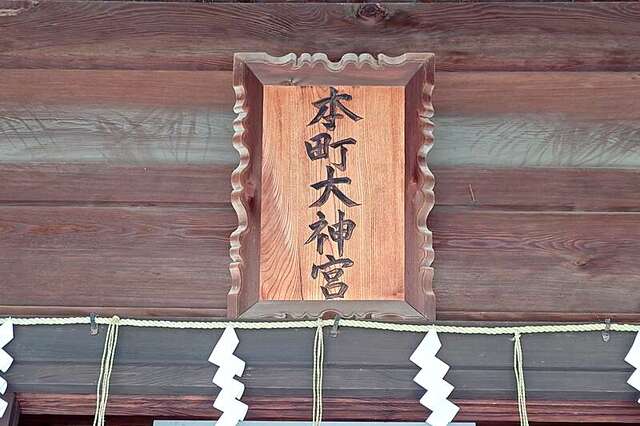 本町大神宮